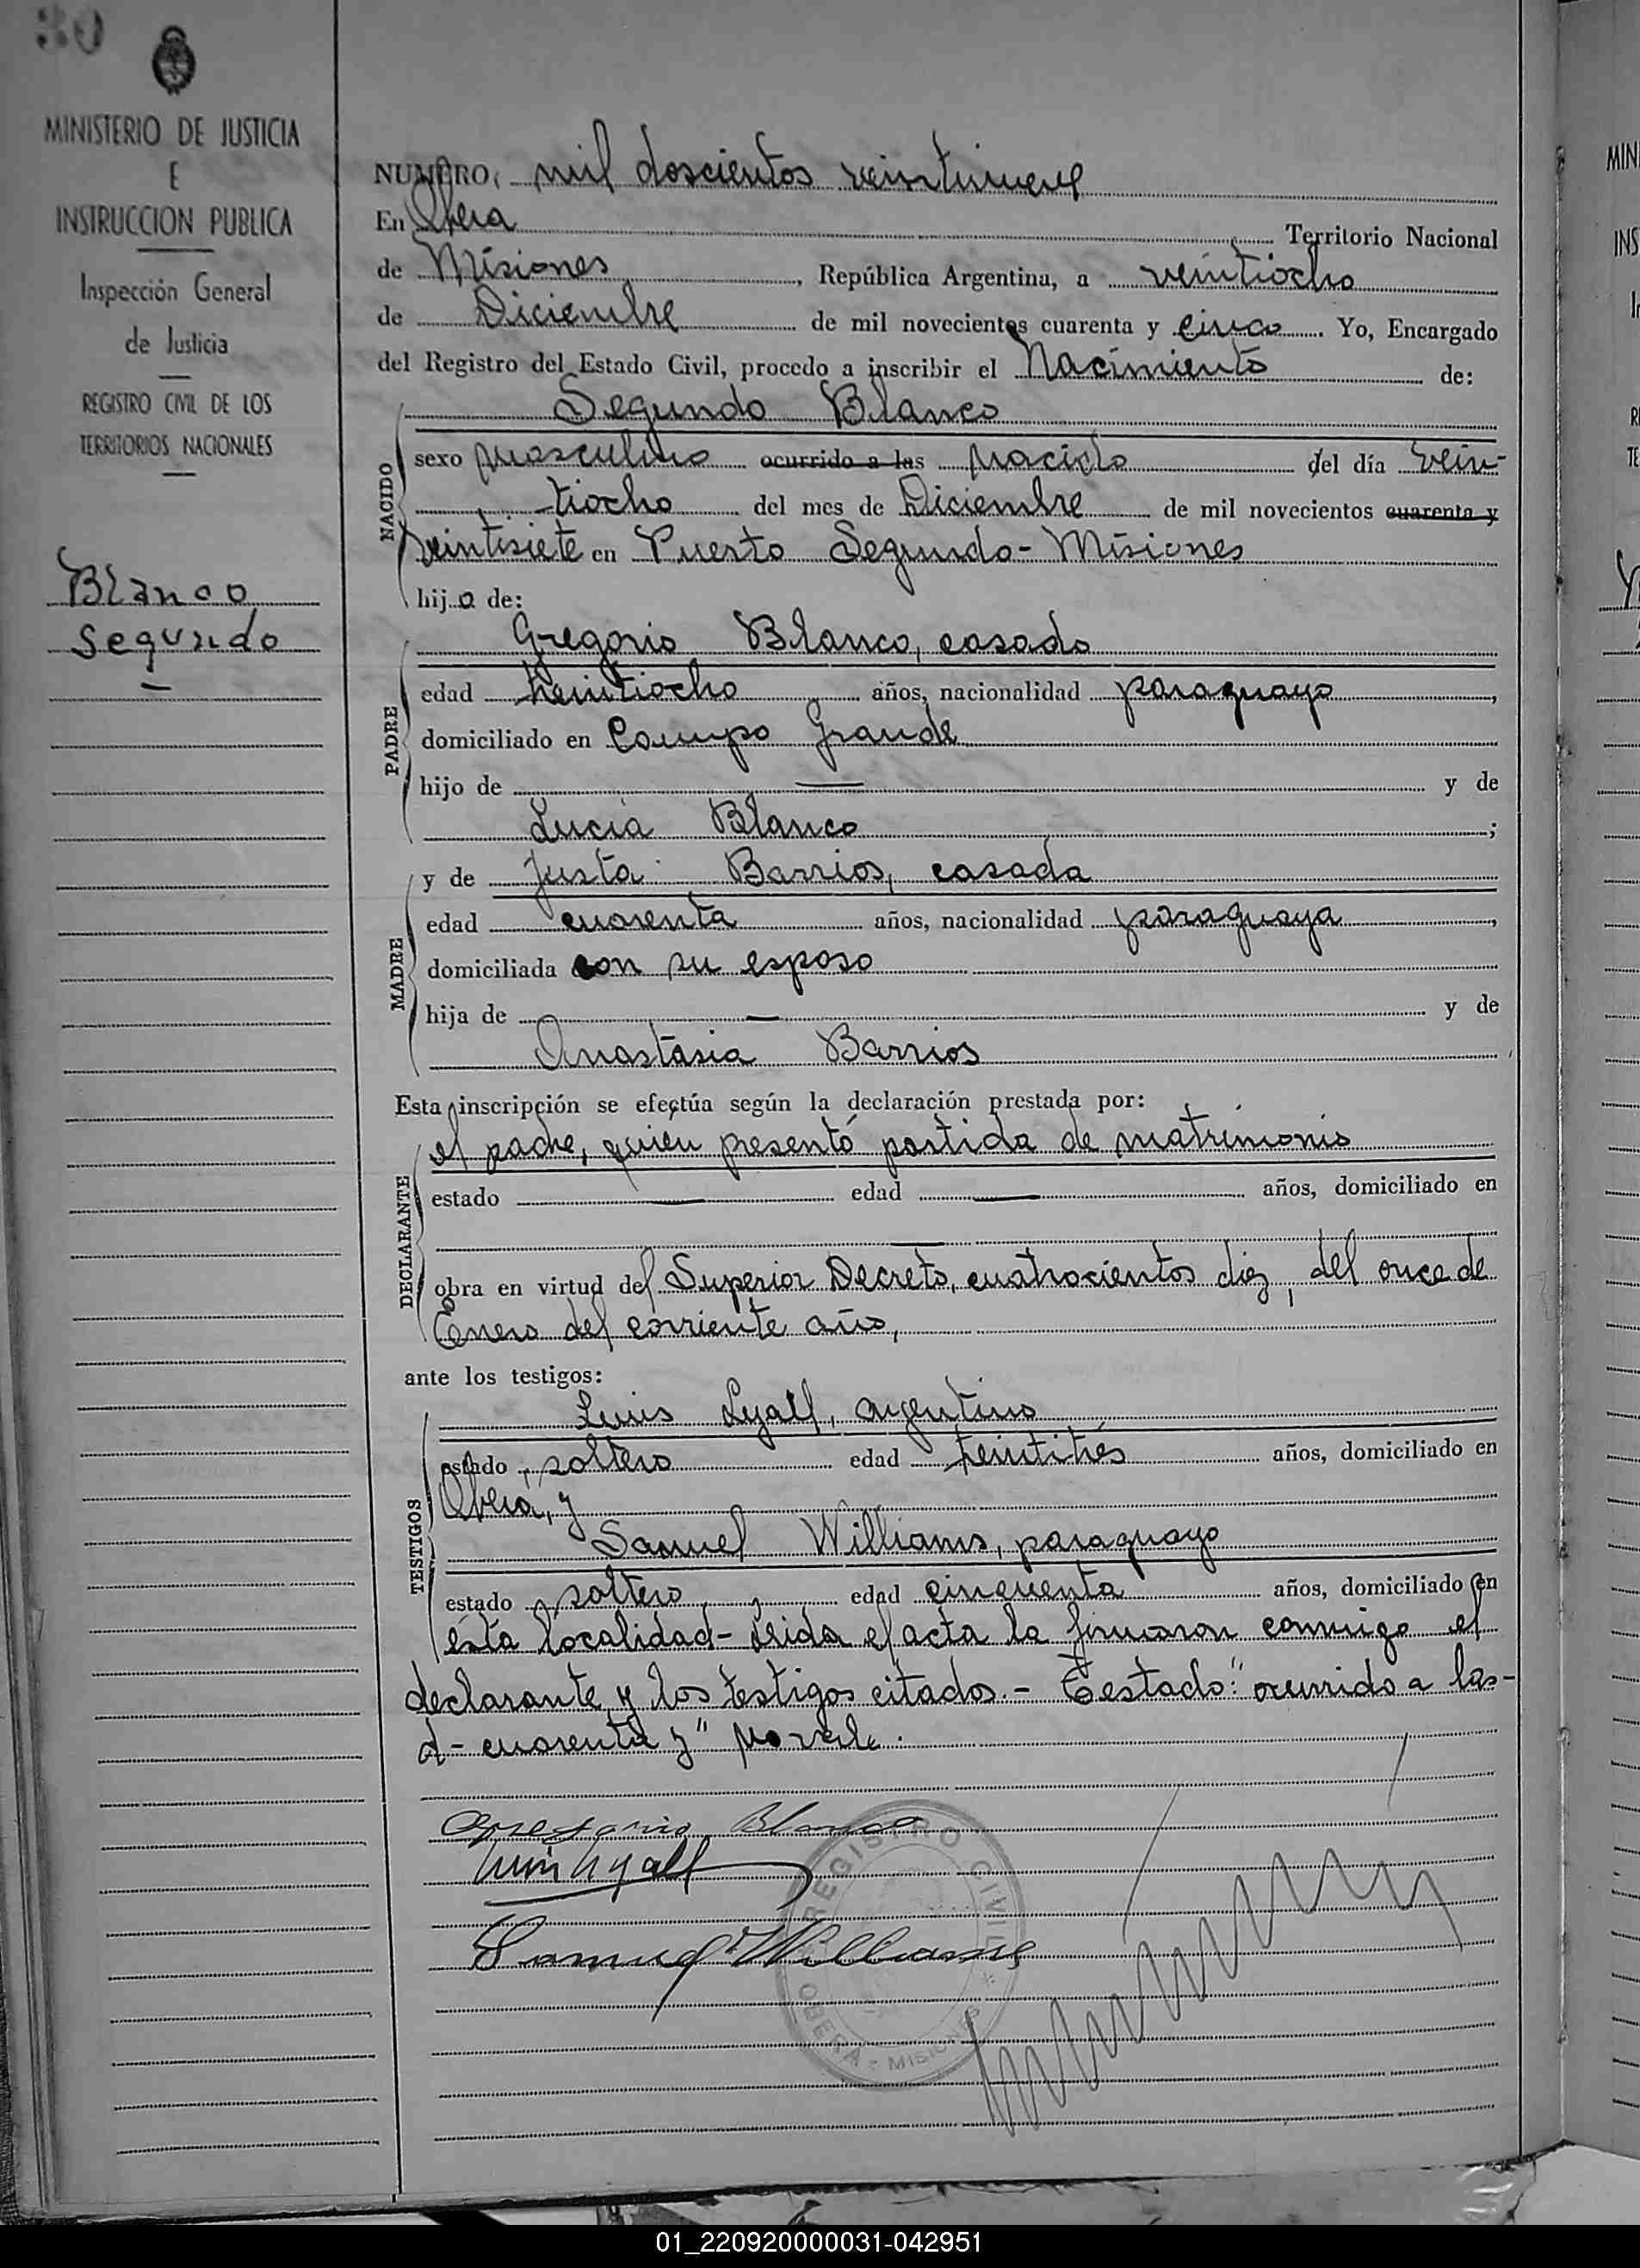 30
MINISTERIO DE JUSTICIA
E
INSTRUCCION PUBLICA
Inspección General
de Justicia
REGISTRO CIVIL DE LOS
TERRITORIOS NACIONALES
Blanco
Segundo
NUMERO, mil doscientos veintinueve
En Obera Territorio Nacional
de Misiones, República Argentina, a veintiocho
de Diciembre de mil novecientos cuarenta y cinco. Yo, Encargado
del Registro del Estado Civil, procedo a inscribir el Nacimiento de:
Segundo Blanco
NACIDO
sexo masculino ocurrido a las nacido del día vein-
tiocho del mes de Diciembre de mil novecientos cuarenta y
veintisiete en Puerto Segundo - Misiones
hijo de:
Gregorio Blanco, casado
PADRE
edad veintiocho años, nacionalidad paraguayo,
domiciliado en Campo Grande
hijo de — y de
Lucia Blanco;
y de Justa Barrios, casada
MADRE
edad cuarenta años, nacionalidad paraguaya,
domiciliada con su esposo
hija de — y de
Anastasia Barrios
Esta inscripción se efectúa según la declaración prestada por:
el padre, quién presentó partida de matrimonio
DECLARANTE
estado — edad — años, domiciliado en
—
obra en virtud del Superior Decreto, cuatrocientos diez, del once de
Enero del corriente año,
ante los testigos:
Luis Lyall, argentino
TESTIGOS
estado soltero edad veintitrés años, domiciliado en
Oberá, y
Samuel Williams, paraguayo
estado soltero edad cincuenta años, domiciliado en
ésta localidad - Leída el acta la firmaron conmigo el
declarante y los testigos citados. - Testado: "ocurrido a las -
d - cuarenta y" No vale.
Gregorio Blanco
Luis Lyall
Samuel Williams
REGISTRO CIVIL
OBERA - MISIONES
MIN
INS
01_220920000031-042951